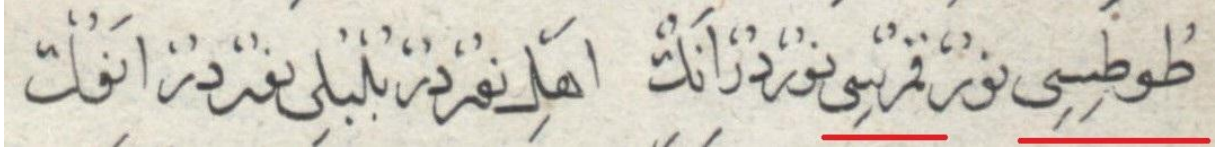 طُوطِسِى نورُ قُمْرُسِى نورْدُرْ اَنُكْ اَهْلِ نُورْدُرْ بُلْبُلِى نُورْدُرْ انُوكْ